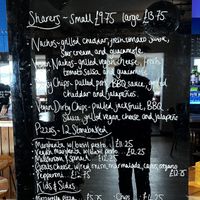 Sharers - Small £9.75 large £13.75
Nachos - grilled cheddar, fresh tomato salsa,
sour cream and guacamole
Vegan Nachos - grilled vegan cheese, fresh
tomato salsa and guacamole
Dirty Chips - pulled pork, BBQ sauce, grilled
and jalapeño
Vegan Dirty Chips - pulled jackfruit, BBQ
Sauce, grilled vegan cheese and jalapeño
Pizzas - 12" Stonebaked
Margherita w/ basil pesto £10.25
Vegan margherita w/ basil pesto £10.25
Mushroom, spinach £11.25
Goats cheese w/ red onion marmalade, capers, oregano
Pepperoni £11.75
Kids & Sides
Margherita Pizza £5.25 Chips